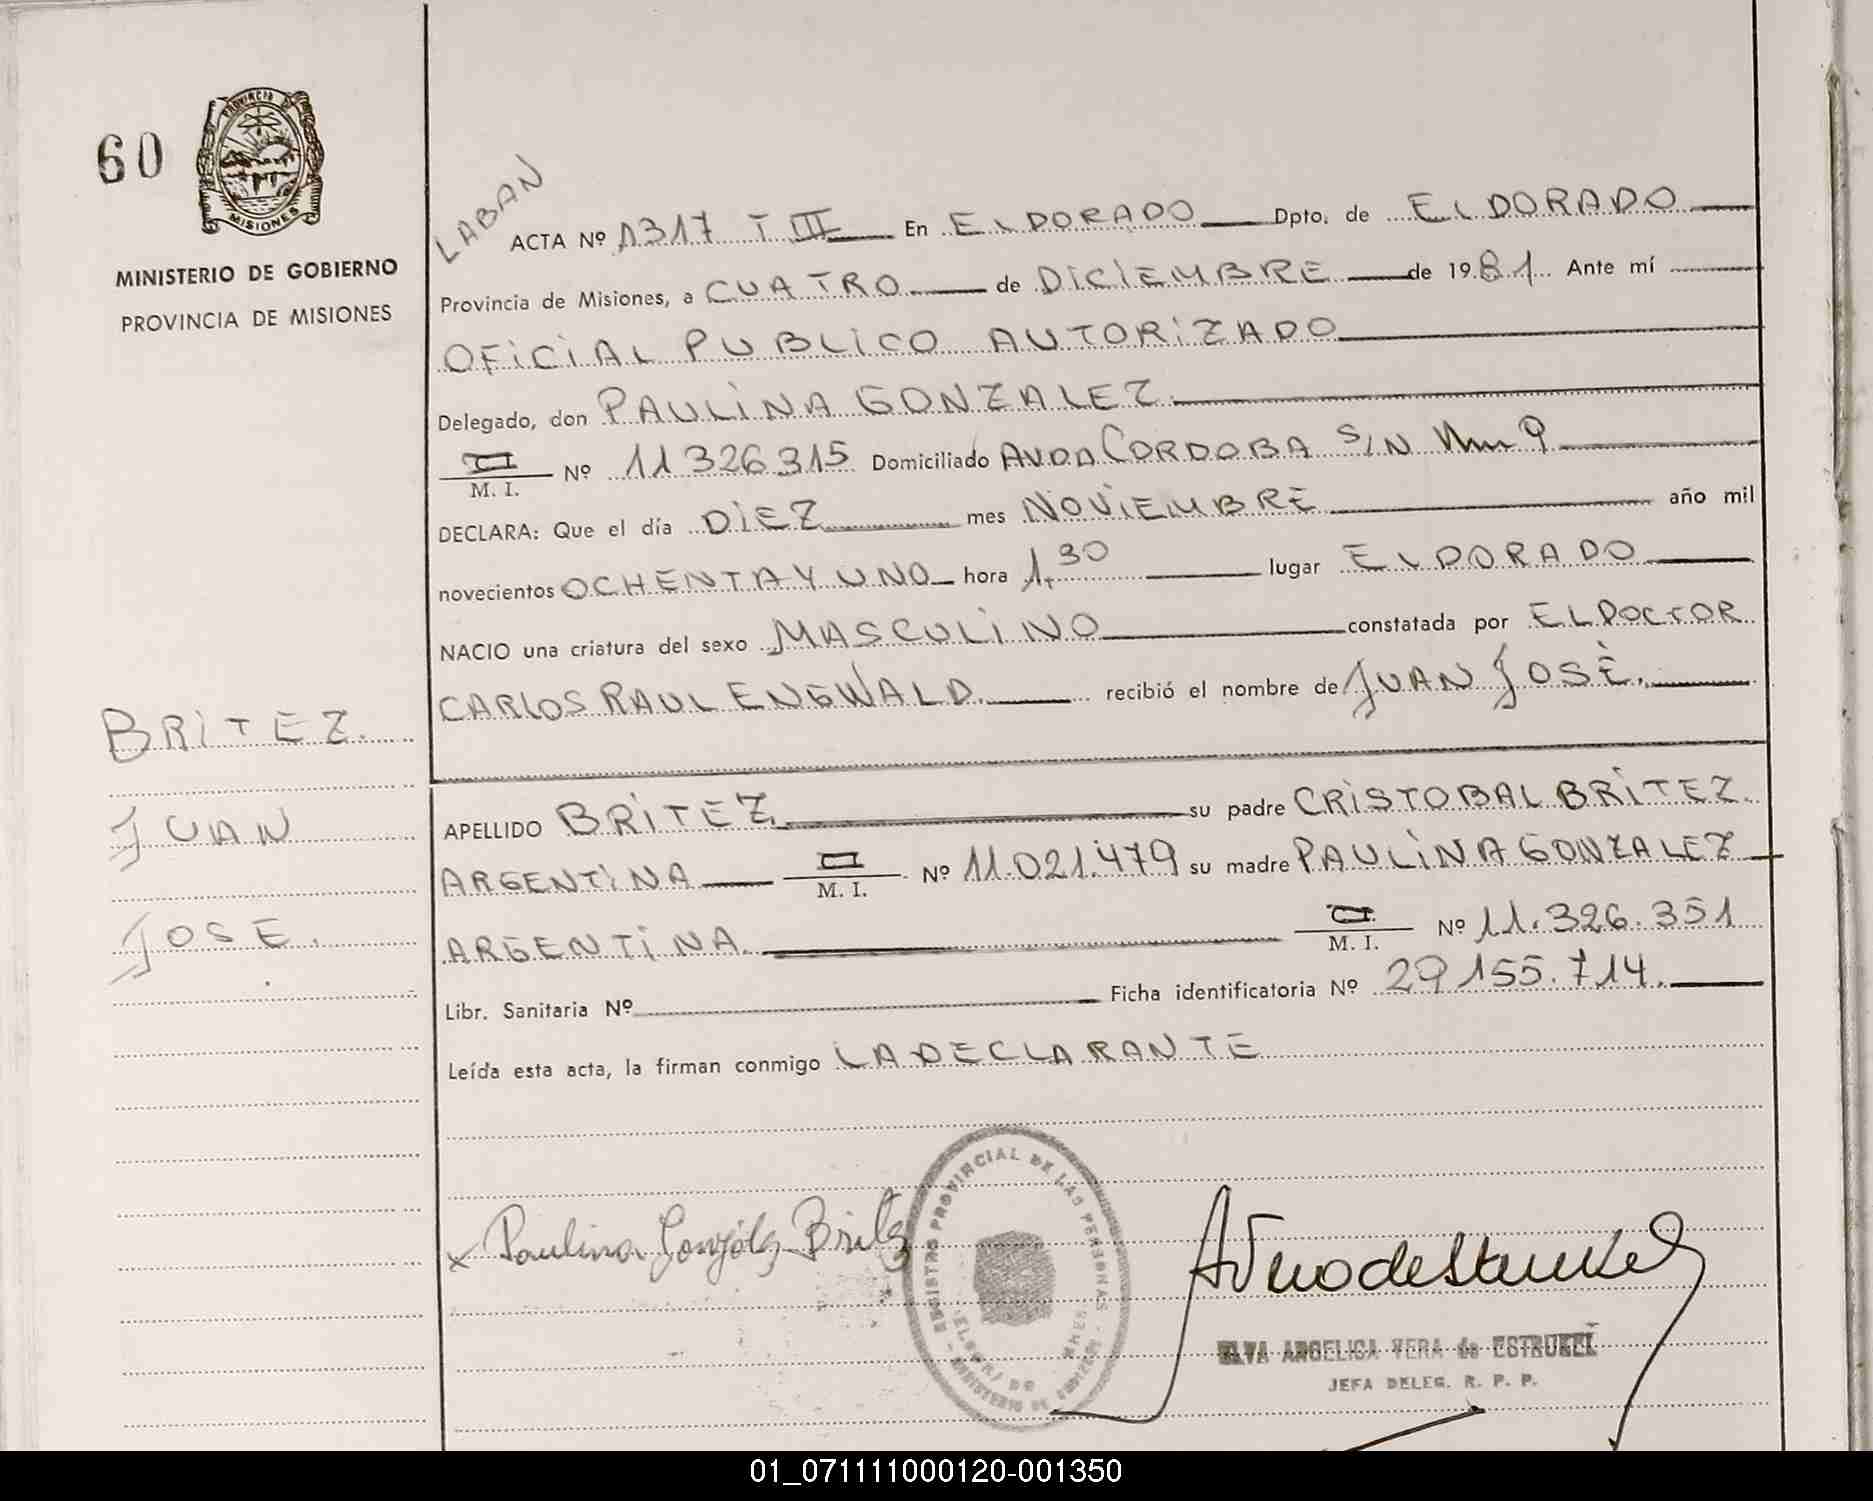 60
PROVINCIA DE
MISIONES
MINISTERIO DE GOBIERNO
PROVINCIA DE MISIONES
LABAN
ACTA Nº 1317 T III En ELDORADO Dpto. de ELDORADO
Provincia de Misiones, a CUATRO de DICIEMBRE de 1981 Ante mí
OFICIAL PUBLICO AUTORIZADO
Delegado, don PAULINA GONZALEZ
CI
M. I. Nº 11326315 Domiciliado AVDA CORDOBA S/N Km 9
DECLARA: Que el día DIEZ mes NOVIEMBRE año mil
novecientos OCHENTA Y UNO hora 1,30 lugar ELDORADO
NACIO una criatura del sexo MASCULINO constatada por EL DOCTOR
CARLOS RAUL ENGWALD. recibió el nombre de JUAN JOSÈ.
BRITEZ.
JUAN
JOSE.
APELLIDO BRITEZ su padre CRISTOBAL BRITEZ.
ARGENTINA CI M. I. Nº 11.021.479 su madre PAULINA GONZALEZ
ARGENTINA. CI M. I. Nº 11.326.351
Libr. Sanitaria Nº Ficha identificatoria Nº 29155.714.
Leída esta acta, la firman conmigo LA DECLARANTE
x Paulina González Britez
REGISTRO PROVINCIAL DE LAS PERSONAS
MINISTERIO DE GOBIERNO
ELVA ANGELICA VERA de ESTRUKEL
JEFA DELEG. R. P. P.
01_071111000120-001350